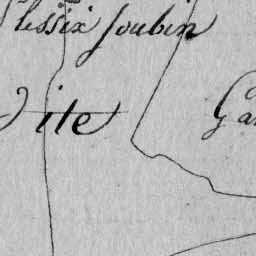 lessix Soubin
ite
Ga